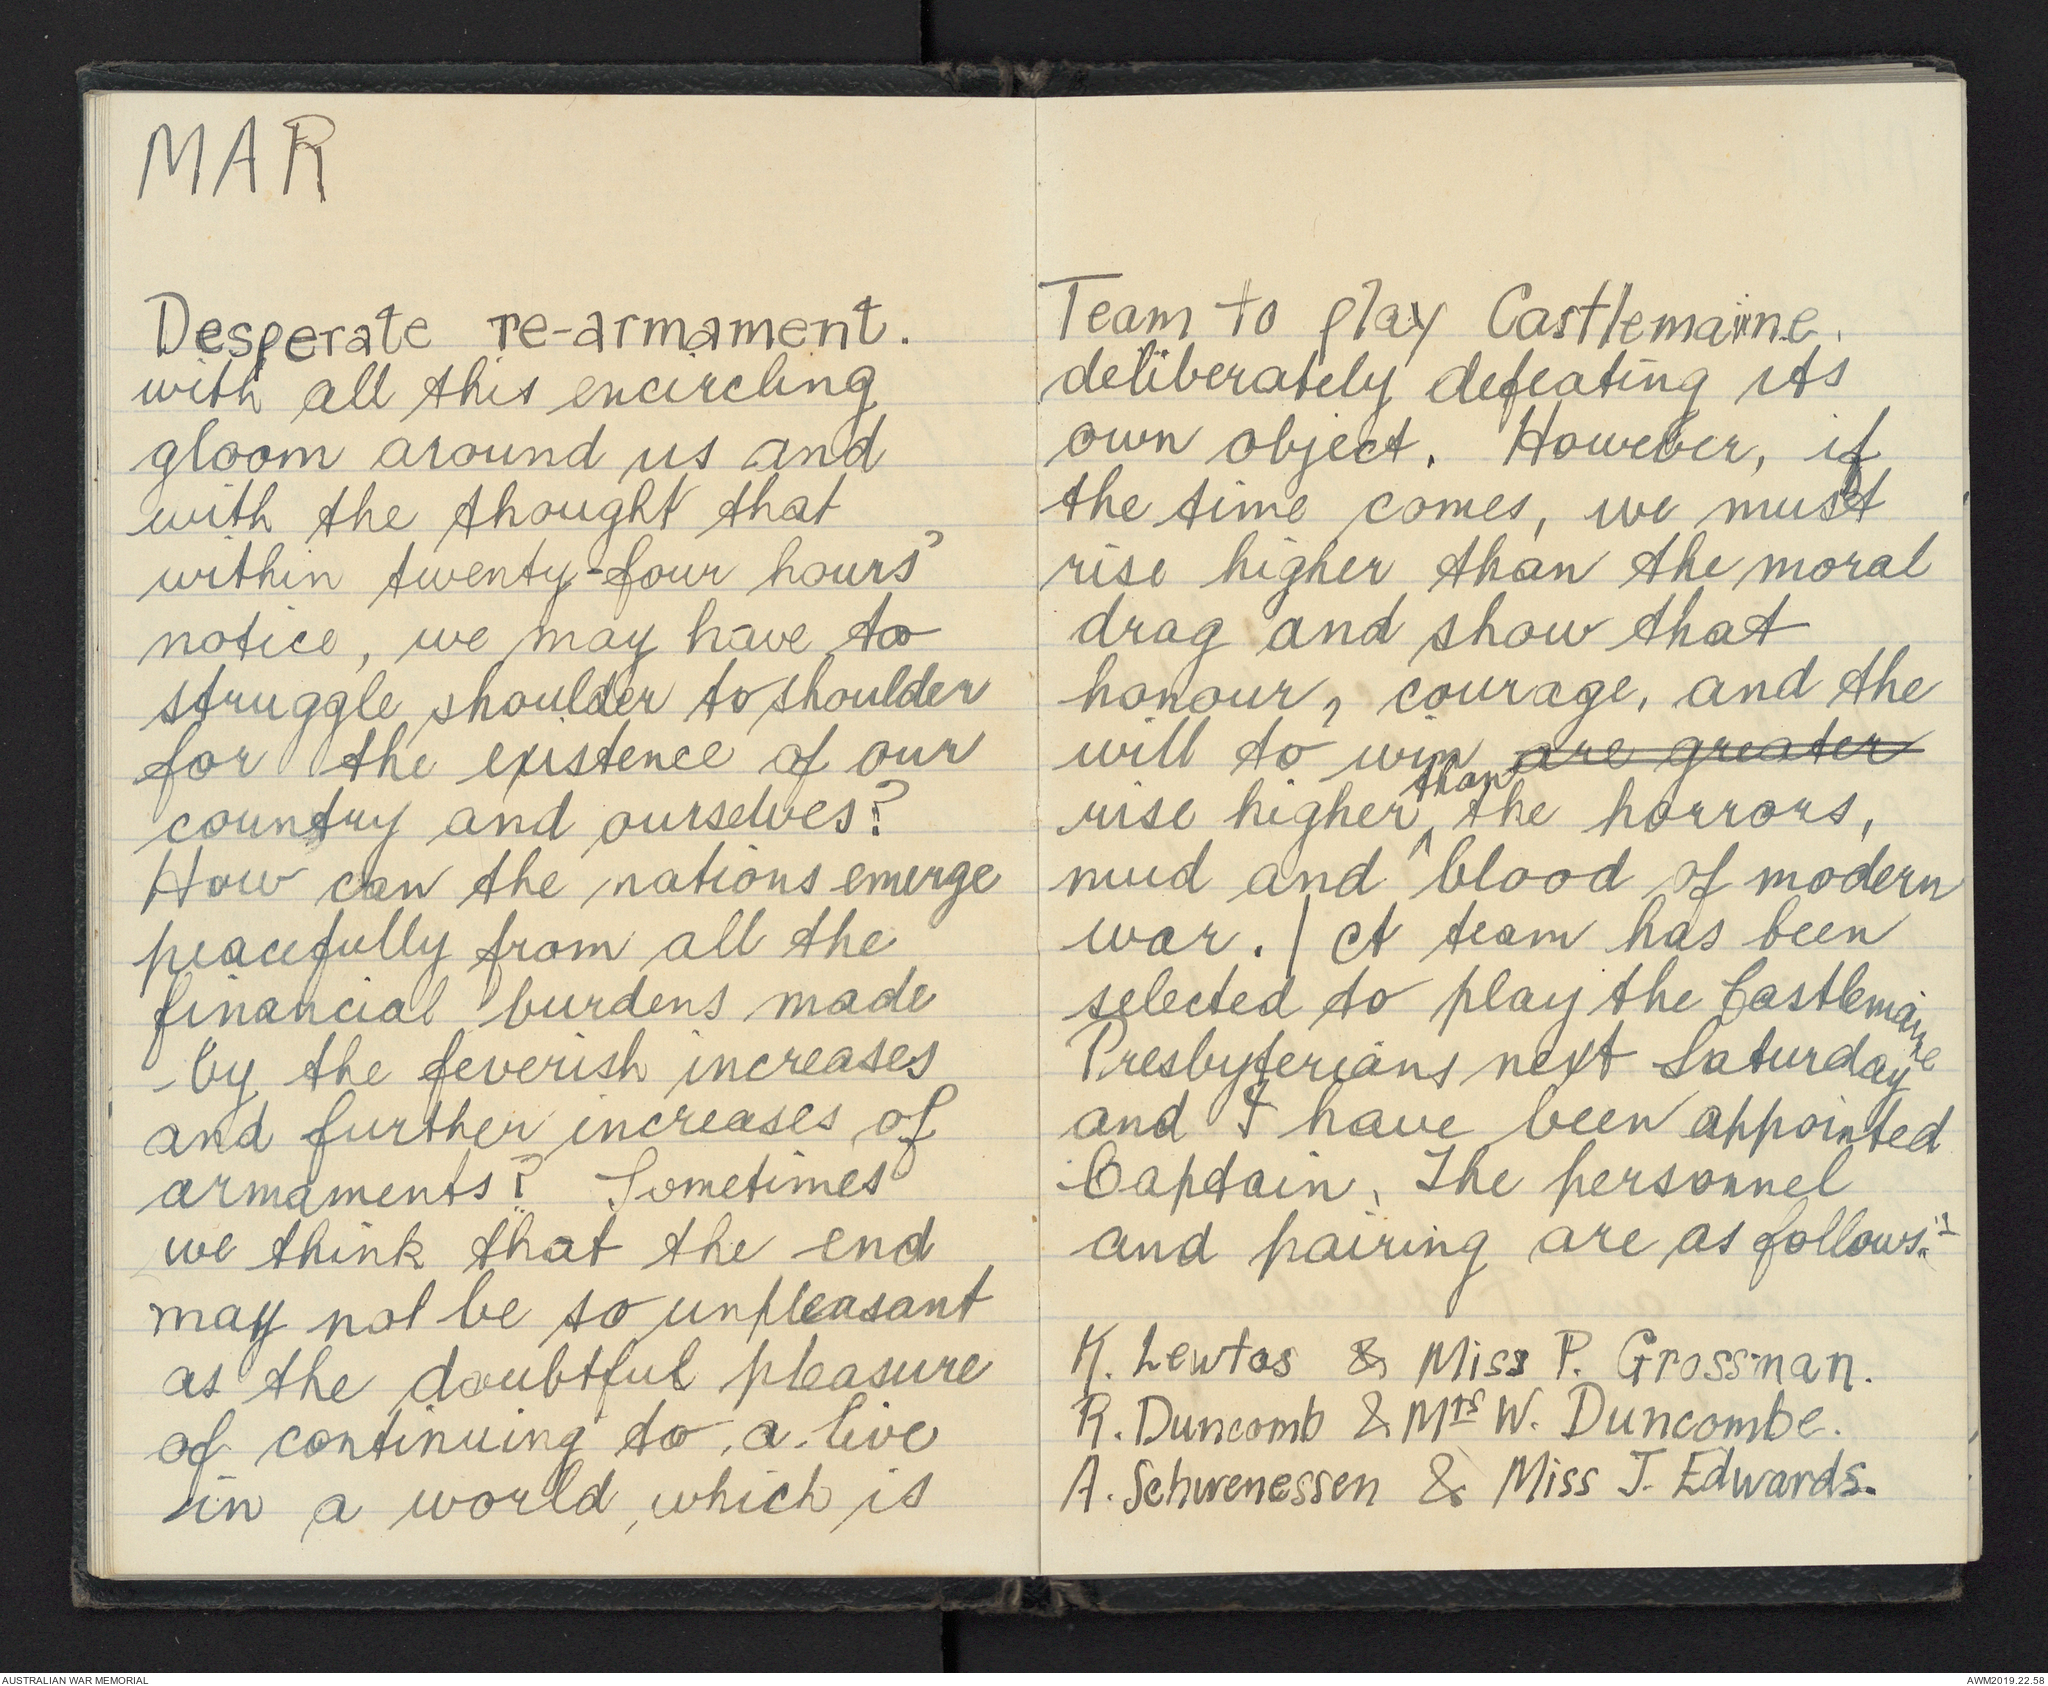 MAR
Desperate re-armament.
with all this encircling
gloom around us and
with the thought that
within twenty-four hours'
notice, we may have to
struggle shoulder to shoulder
for the existence of our
country and ourselves?
How can the nations emerge
peacefully from all the
financial burdens made
by the feverish increases
and further increases of
armaments? Sometimes
we think that the end
may not be so unpleasant
as the doubtful pleasure
of continuing to a live
in a world, which is
Team to play Castlemaine.
deliberately defeating its
own object. However, if
the time comes, we must
rise higher than the moral
drag and show that
honour, courage, and the
will to win are greater
rise higher than the horrors,
mud and blood of modern
war. / A team has been
selected to play the Castlemaine
Presbyterians next Saturday
and I have been appointed
Captain. The personnel
and pairing are as follows:-
K. Lewtas & Miss P. Grossman.
R. Duncomb & Mrs W. Duncombe.
A. Schwenessen & Miss J. Edwards.
AUSTRALIAN WAR MEMORIAL
AWM2019.22.58